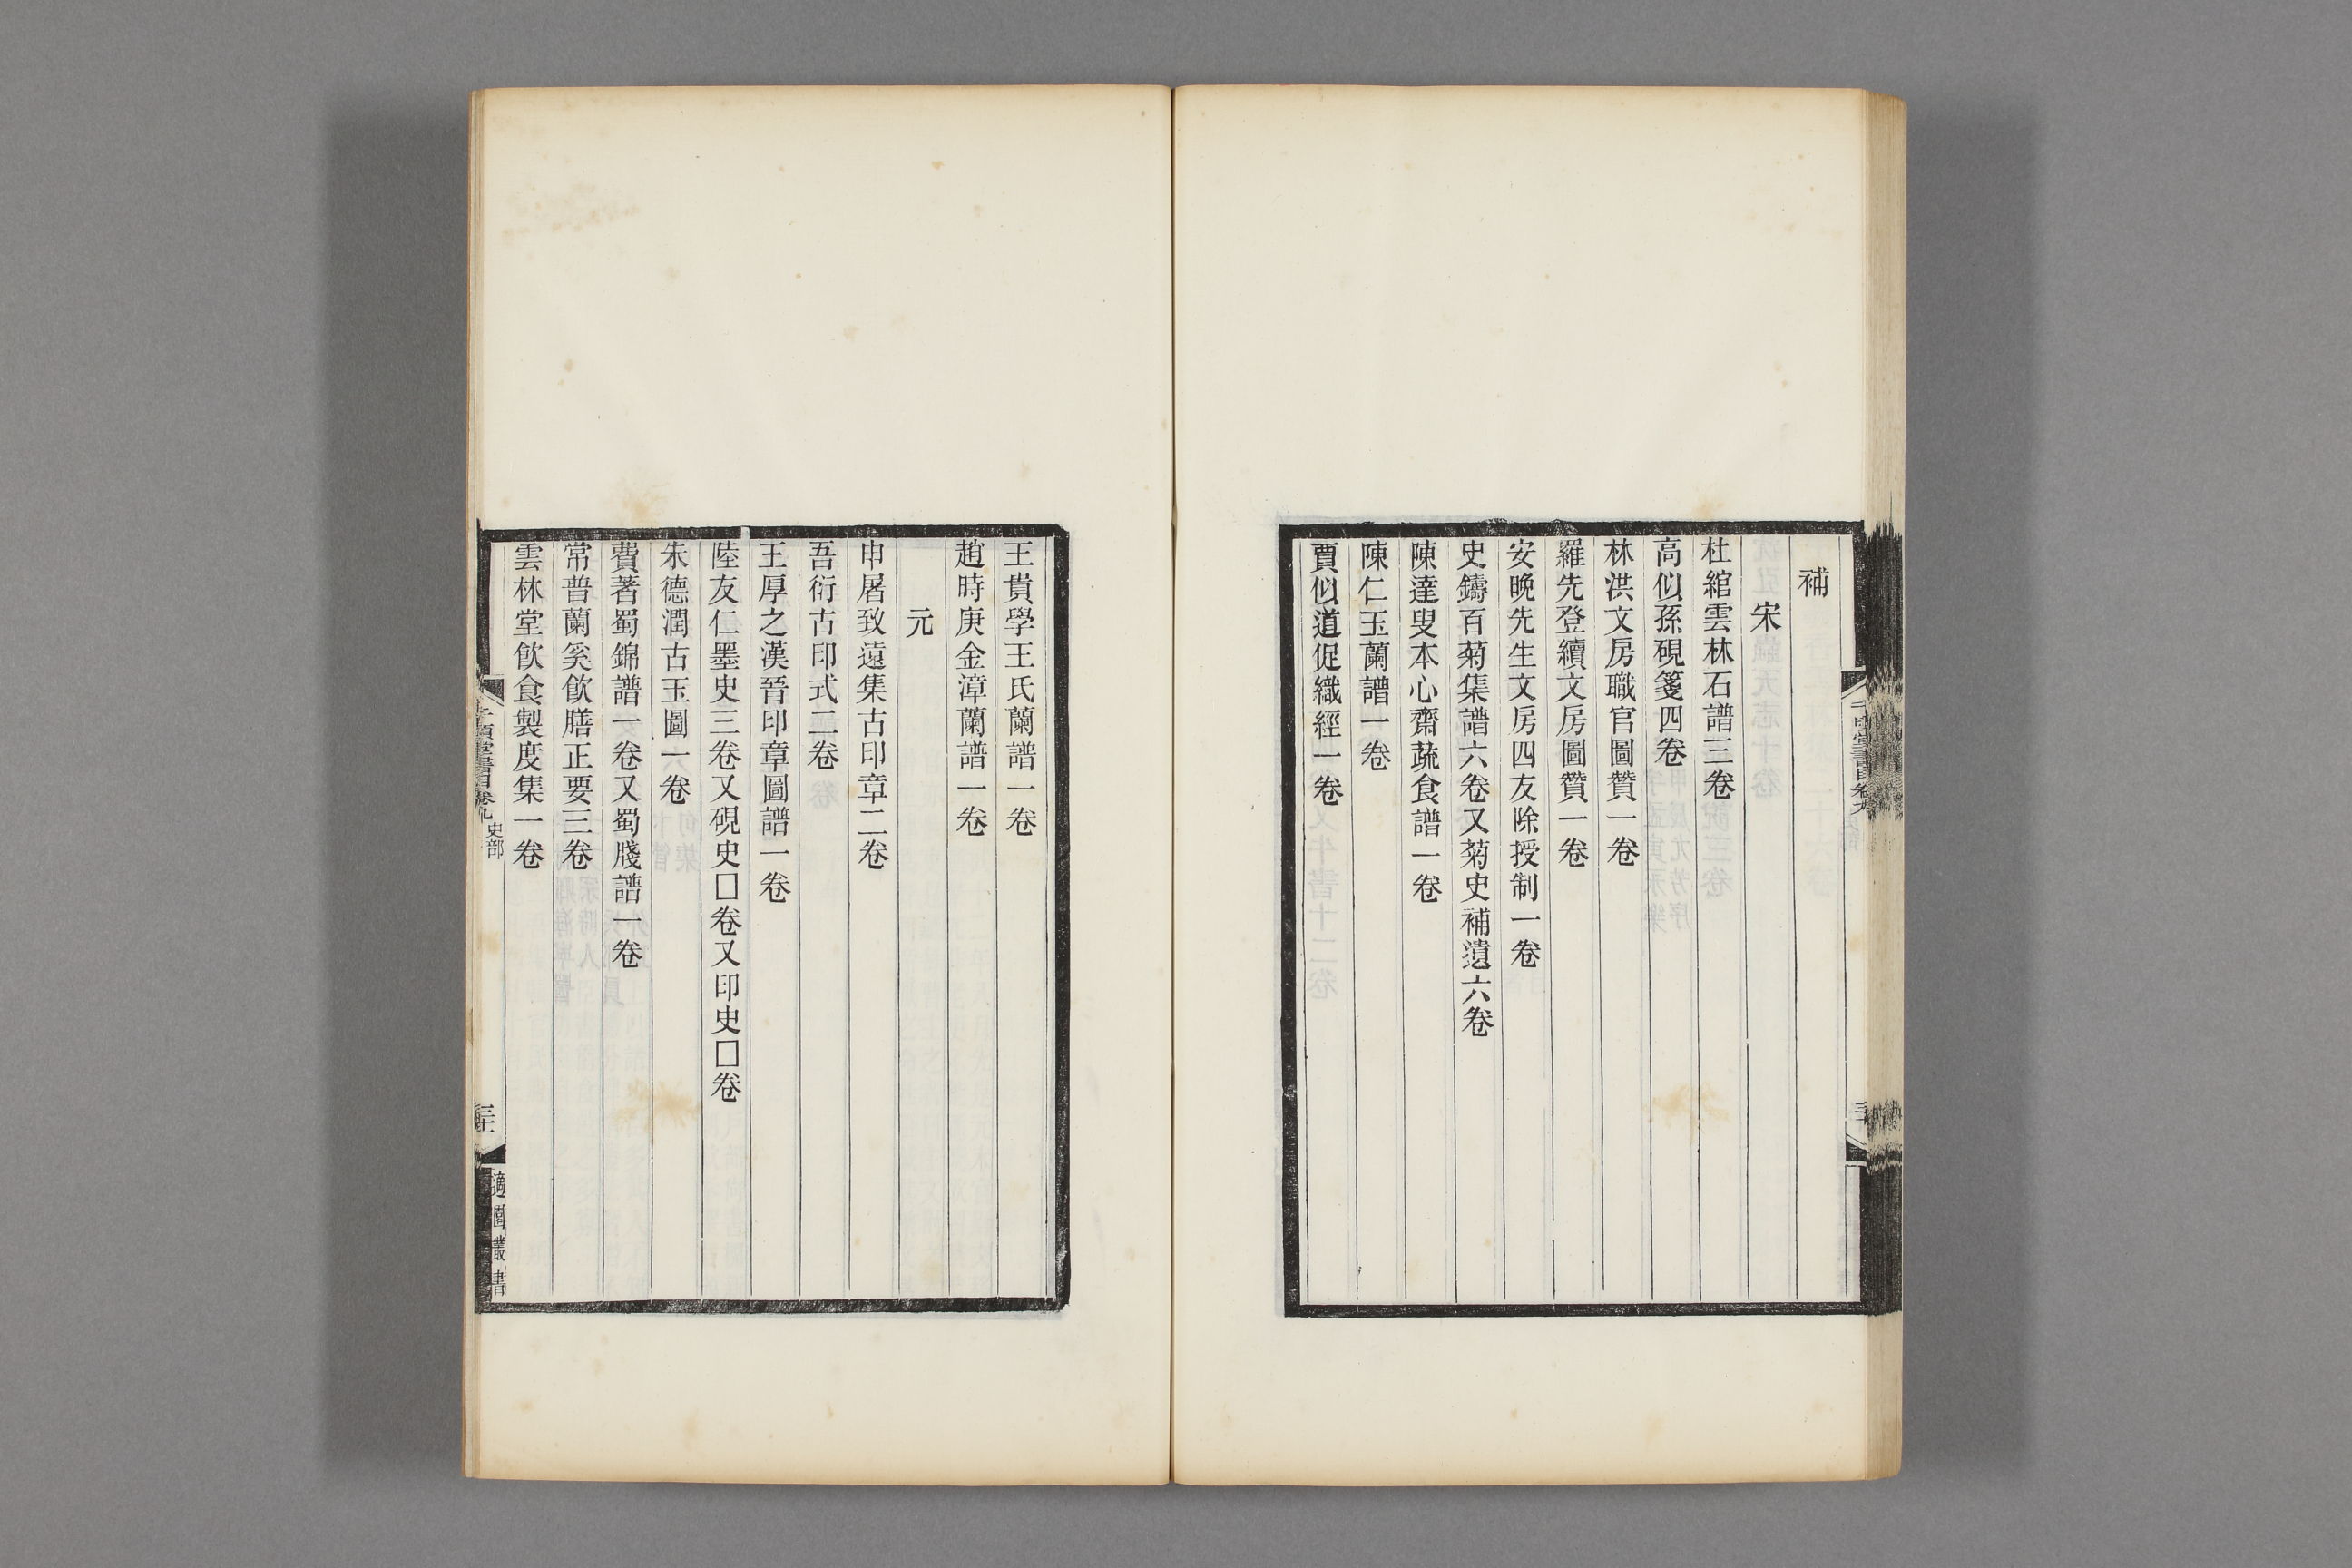 補
宋
杜綰雲林石譜三卷
高似孫硯箋四卷
林洪文房職官圖贊一卷
羅先登續文房圖贊一卷
安晚先生文房四友除授制一卷
史鑄百菊集譜六卷又菊史補遺六卷
陳達叟本心齋蔬食譜一卷
陳仁玉蘭譜一卷
賈似道促織經一卷
王貴學王氏蘭譜一卷
趙時庚金漳蘭譜一卷
元
申屠致遠集古印章二卷
吾衍古印式二卷
王厚之漢晉印章圖譜一卷
陸友仁墨史三卷又硯史□卷又印史□卷
朱德潤古玉圖一卷
費著蜀錦譜一卷又蜀牋譜一卷
常普蘭奚飲膳正要三卷
雲林堂飲食製度集一卷
千頃堂書目卷九 史部
適園叢書